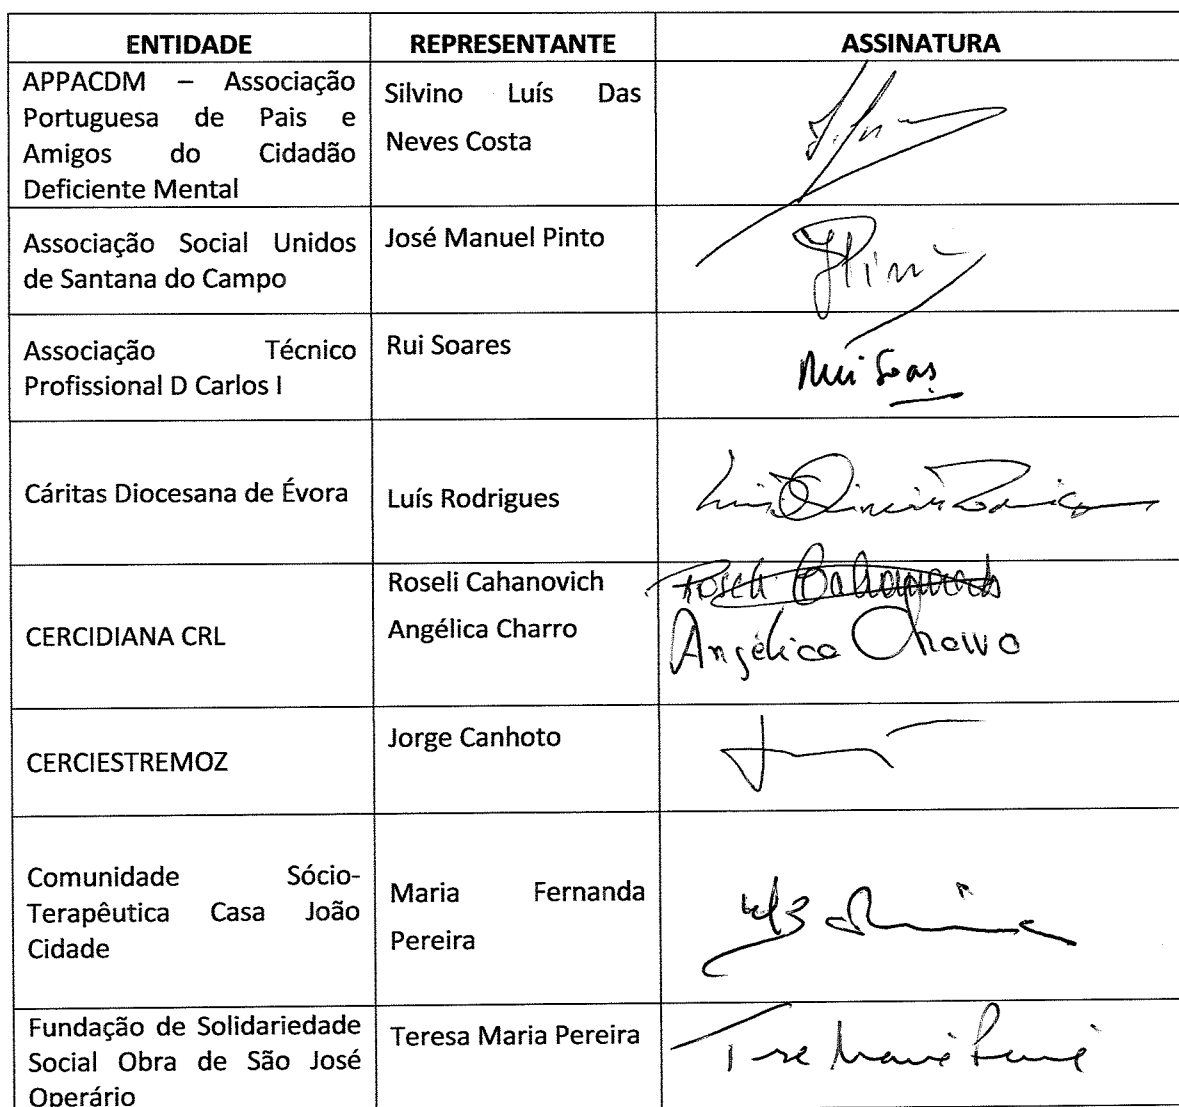 ENTIDADE REPRESENTANTE ASSINATURA
APPACDM – Associação
Portuguesa de Pais e
Amigos do Cidadão
Deficiente Mental
Silvino Luís Das
Neves Costa
Associação Social Unidos
de Santana do Campo
José Manuel Pinto
Associação Técnico
Profissional D Carlos I
Rui Soares
Rui Soares
Cáritas Diocesana de Évora
Luís Rodrigues
CERCIDIANA CRL
Roseli Cahanovich
Angélica Charro
Roseli Cahanovich
Angélica Charro
CERCIESTREMOZ
Jorge Canhoto
Comunidade Sócio-
Terapêutica Casa João
Cidade
Maria Fernanda
Pereira
Fundação de Solidariedade
Social Obra de São José
Operário
Teresa Maria Pereira